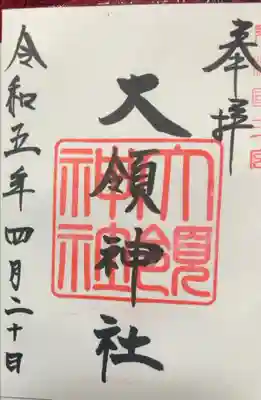 奉拝
大領神社
大領神社
令和五年四月二十日